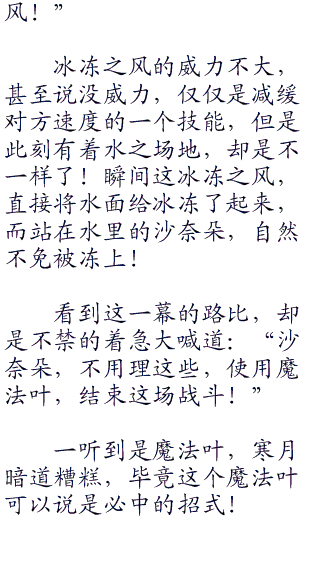 风！”
冰冻之风的威力不大，
甚至说没威力，仅仅是减缓
对方速度的一个技能，但是
此刻有着水之场地，却是不
一样了！瞬间这冰冻之风，
直接将水面给冰冻了起来，
而站在水里的沙奈朵，自然
不免被冻上！
看到这一幕的路比，却
是不禁的着急大喊道：“沙
奈朵，不用理这些，使用魔
法叶，结束这场战斗！”
一听到是魔法叶，寒月
暗道糟糕，毕竟这个魔法叶
可以说是必中的招式！